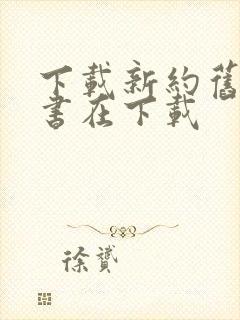 下載新約舊
書在下載
徐贇